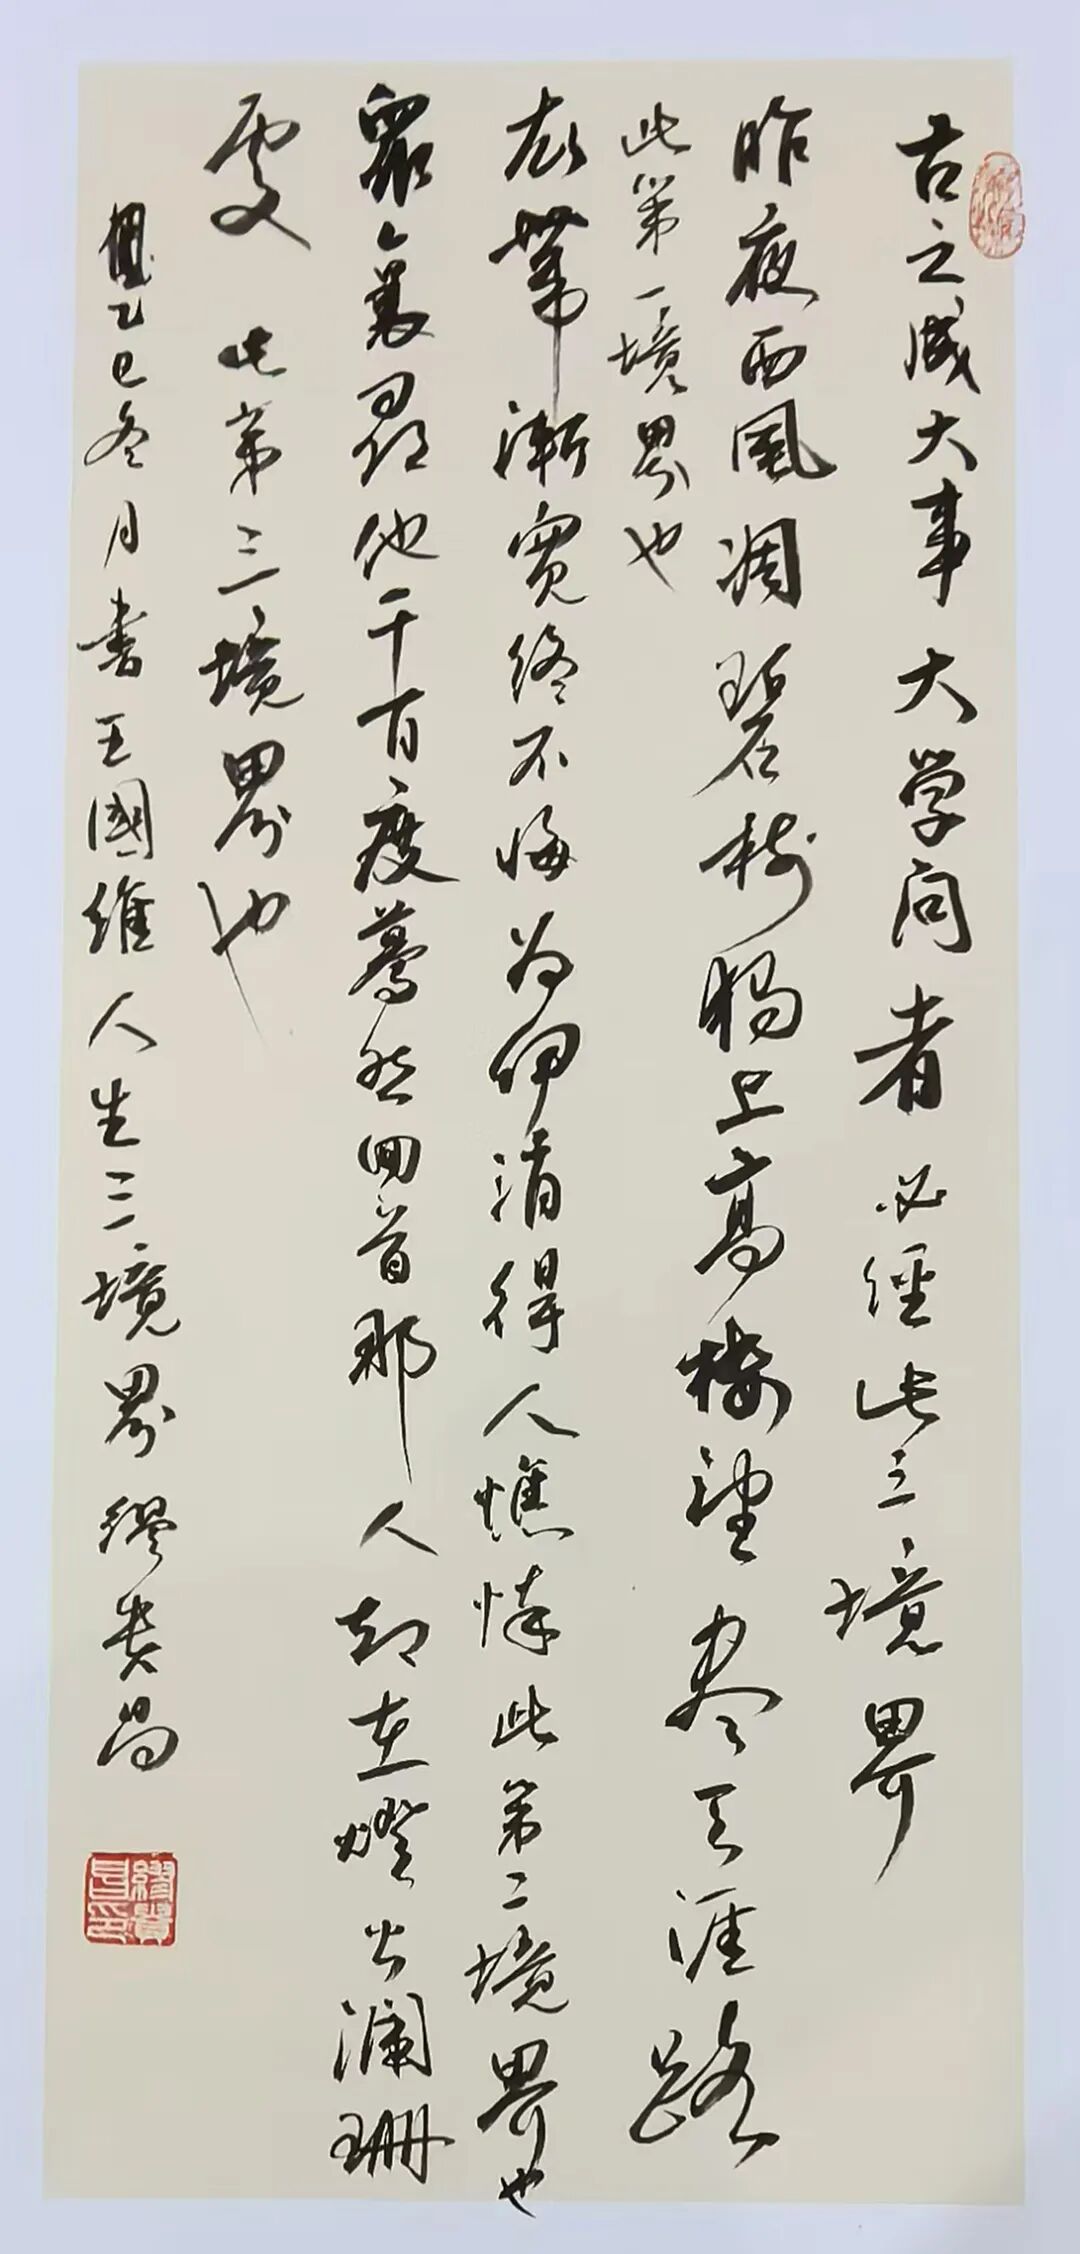 古之成大事大学问者必经此三境界
昨夜西风凋碧树独上高楼望尽天涯路
此第一境界也
衣带渐宽终不悔为伊消得人憔悴此第二境界也
眾里尋他千百度蓦然回首那人却在燈火瀾珊
处此第三境界也
乙巳冬月書王國維人生三境界繆贵昌